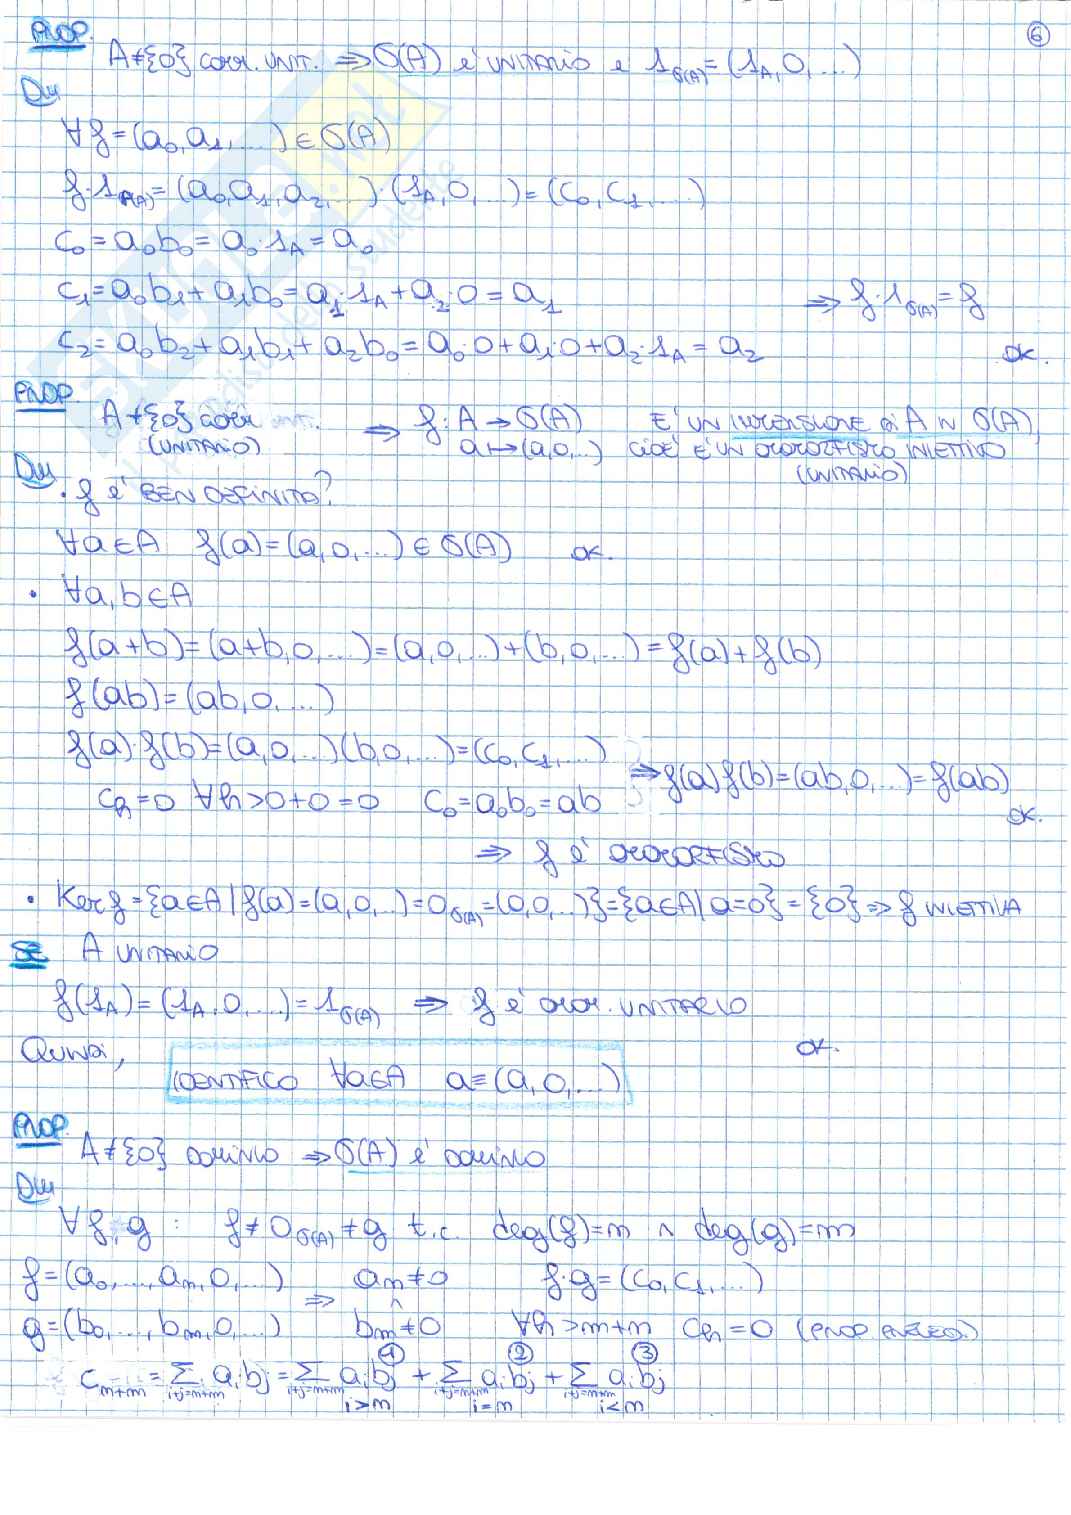 PROP. 6
A≠{0} corr. UNIT. ⇒ σ(A) è UNITARIO e 1σ(A)=(1A,0,...)
Dim
∀f=(a0,a1,...)∈σ(A)
f·1σ(A)=(a0,a1,a2,...)·(1A,0,...)=(c0,c1,...)
c0=a0b0=a0·1A=a0
c1=a0b1+a1b0=a1·1A+a2·0=a1 ⇒ f·1σ(A)=f
c2=a0b2+a1b1+a2b0=a0·0+a1·0+a2·1A=a2 ok.
PROP
A≠{0} corr ⇒ f: A→σ(A) E' UN IMMERSIONE di A IN σ(A),
(UNITARIO) a↦(a,0,...) cioè E' UN OMOMORFISMO INIETTIVO
(UNITARIO)
Dim
· f è BEN DEFINITO?
∀a∈A f(a)=(a,0,...)∈σ(A) ok.
· ∀a,b∈A
f(a+b)=(a+b,0,...)=(a,0,...)+(b,0,...)=f(a)+f(b)
f(ab)=(ab,0,...)
f(a)·f(b)=(a,0,...)(b,0,...)=(c0,c1,...)
⇒f(a)f(b)=(ab,0,...)=f(ab)
ch=0 ∀h>0+0=0 c0=a0b0=ab ok.
⇒ f è OMOMORFISMO
· Kerf={a∈A|f(a)=(a,0,...)=0σ(A)=(0,0,...)}={a∈A|a=0}={0}⇒ f INIETTIVA
SE A UNITARIO
f(1A)=(1A,0,...)=1σ(A) ⇒ f è omom. UNITARIO
Quindi, ok.
IDENTIFICO ∀a∈A a≡(a,0,...)
PROP.
A≠{0} DOMINIO ⇒ σ(A) è DOMINIO
Dim
∀f,g : f≠0σ(A)≠g t.c. deg(f)=n ∧ deg(g)=m
f=(a0,...,an,0,...) an≠0 f·g=(c0,c1,...)
⇒ ∧
g=(b0,...,bm,0,...) bm≠0 ∀h>m+n ch=0 (PROP PRECED.)
① ② ③
cn+m=∑ aibj=∑ aibj+∑ aibj+∑ aibj
i+j=n+m i+j=n+m i+j=n+m i+j=n+m
i>n i=n i<n